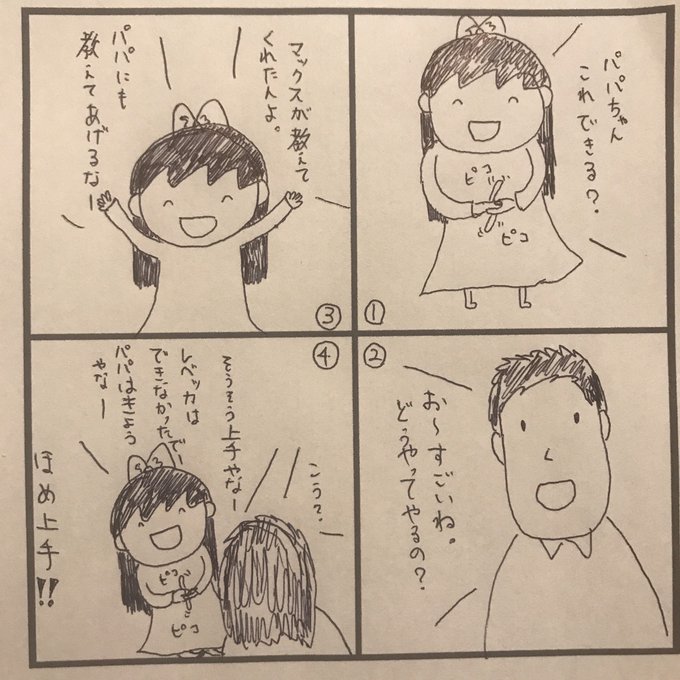 パパちゃん
これできる?
ピコ
ピコ
①
②
お〜すごいね。
どうやってやるの?
マックスが教えて
くれたんよ。
パパにも
教えてあげるなー
③
④
こう?
そうそう上手やなー
レベッカは
できなかったで
パパはきよう
やなー
ピコ
ピコ
ほめ上手!!